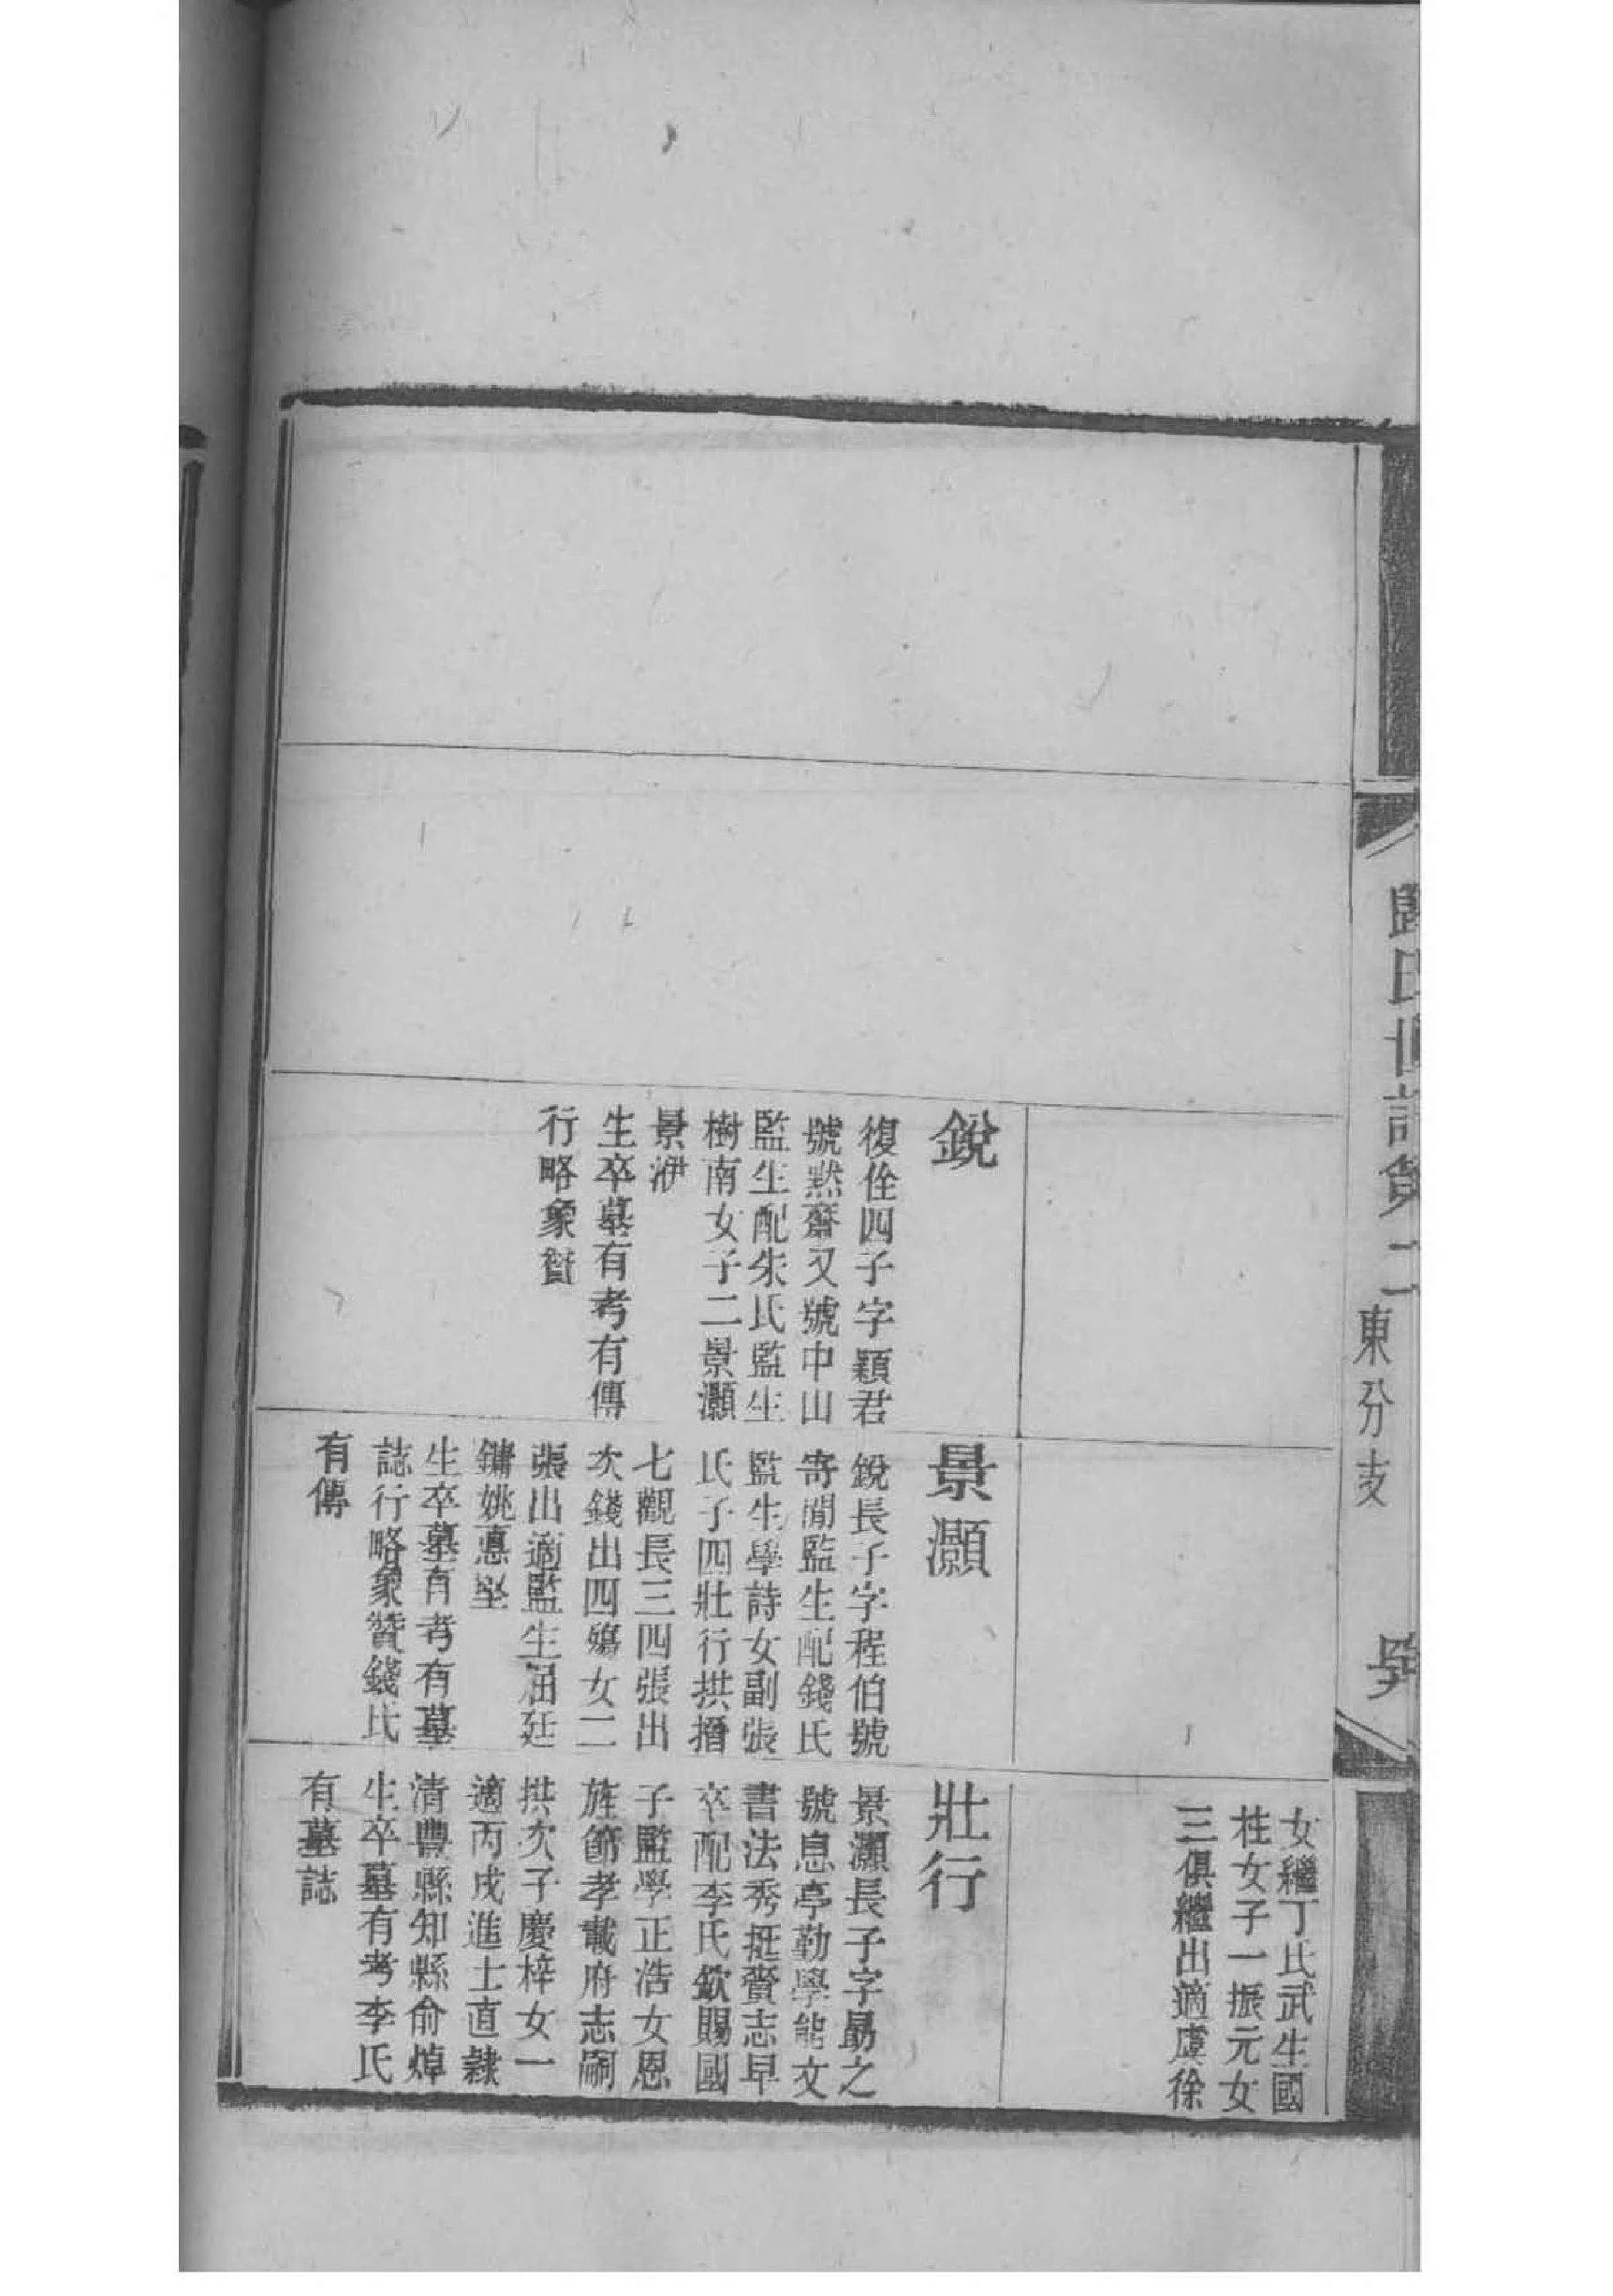 歸氏世譜第二
東分支
女繼丁氏武生國
柱女子一振元女
三俱繼出適虞徐
銳
復佺四子字穎君
號黙齋又號中山
監生配朱氏監生
樹南女子二景灝
景洢
生卒墓有考有傳
行略象贊
景灝
銳長子字程伯號
寄閒監生配錢氏
監生學詩女副張
氏子四壯行拱搢
七觀長三四張出
次錢出四殤女二
張出適監生屈廷
鏞姚惪埾
生卒墓有考有墓
誌行略象贊錢氏
有傳
壯行
景灝長子字勗之
號息亭勤學能文
書法秀挺賫志早
卒配李氏欽賜國
子監學正浩女恩
旌節孝載府志嗣
拱次子慶梓女一
適丙戌進士直隸
清豐縣知縣俞焯
生卒墓有考李氏
有墓誌